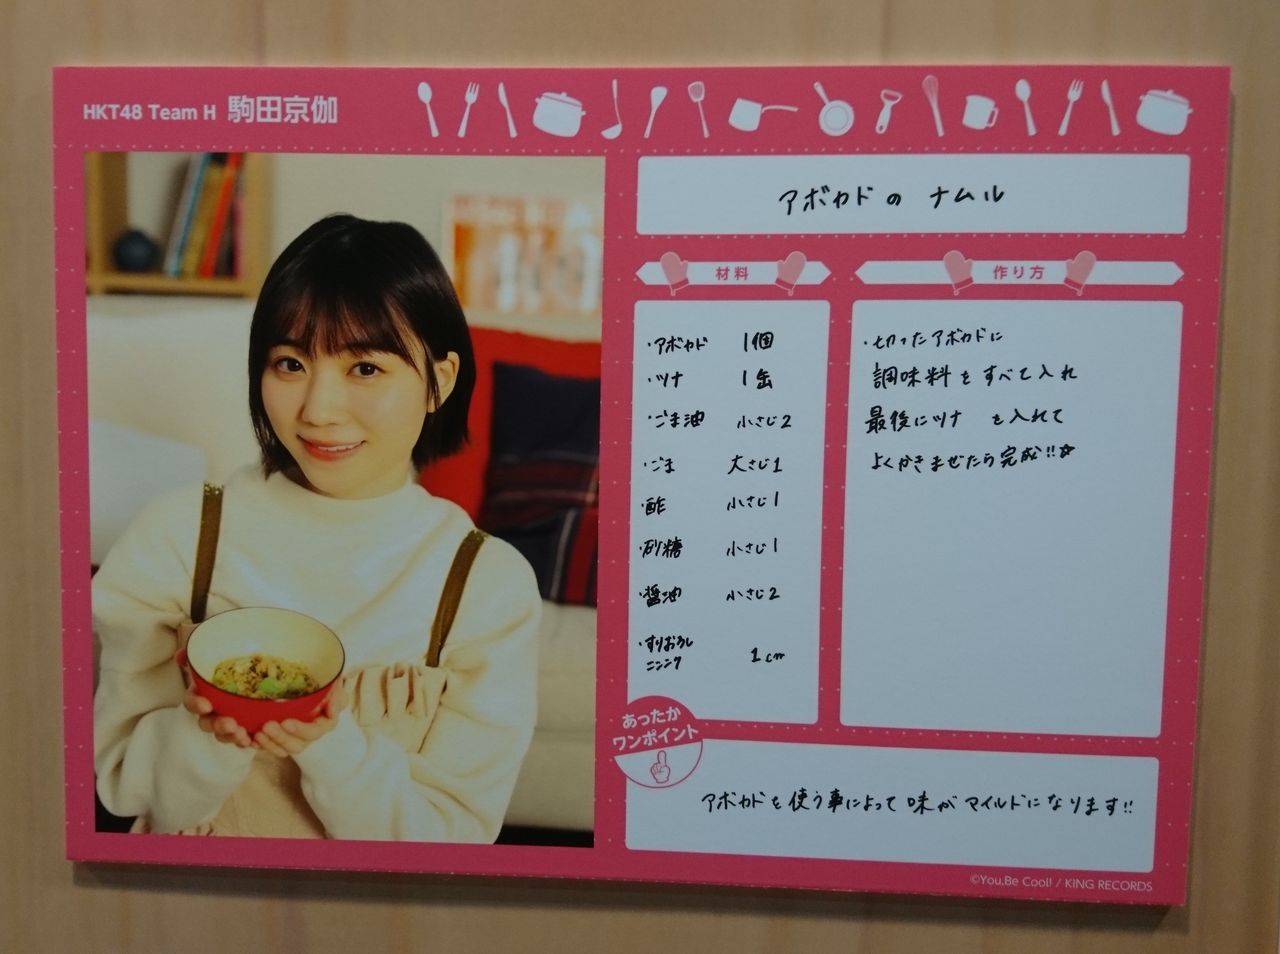 HKT48 Team H 駒田京伽
アボカドの ナムル
材料
・アボカド 1個
・ツナ 1缶
・ごま油 小さじ2
・ごま 大さじ1
・酢 小さじ1
・砂糖 小さじ1
・醤油 小さじ2
・すりおろし
ニンニク 1cm
作り方
・切ったアボカドに
調味料をすべて入れ
最後にツナ を入れて
よくかきまぜたら完成!!☆
あったか
ワンポイント
アボカドを使う事によって味がマイルドになります!!
©You,Be Cool! / KING RECORDS